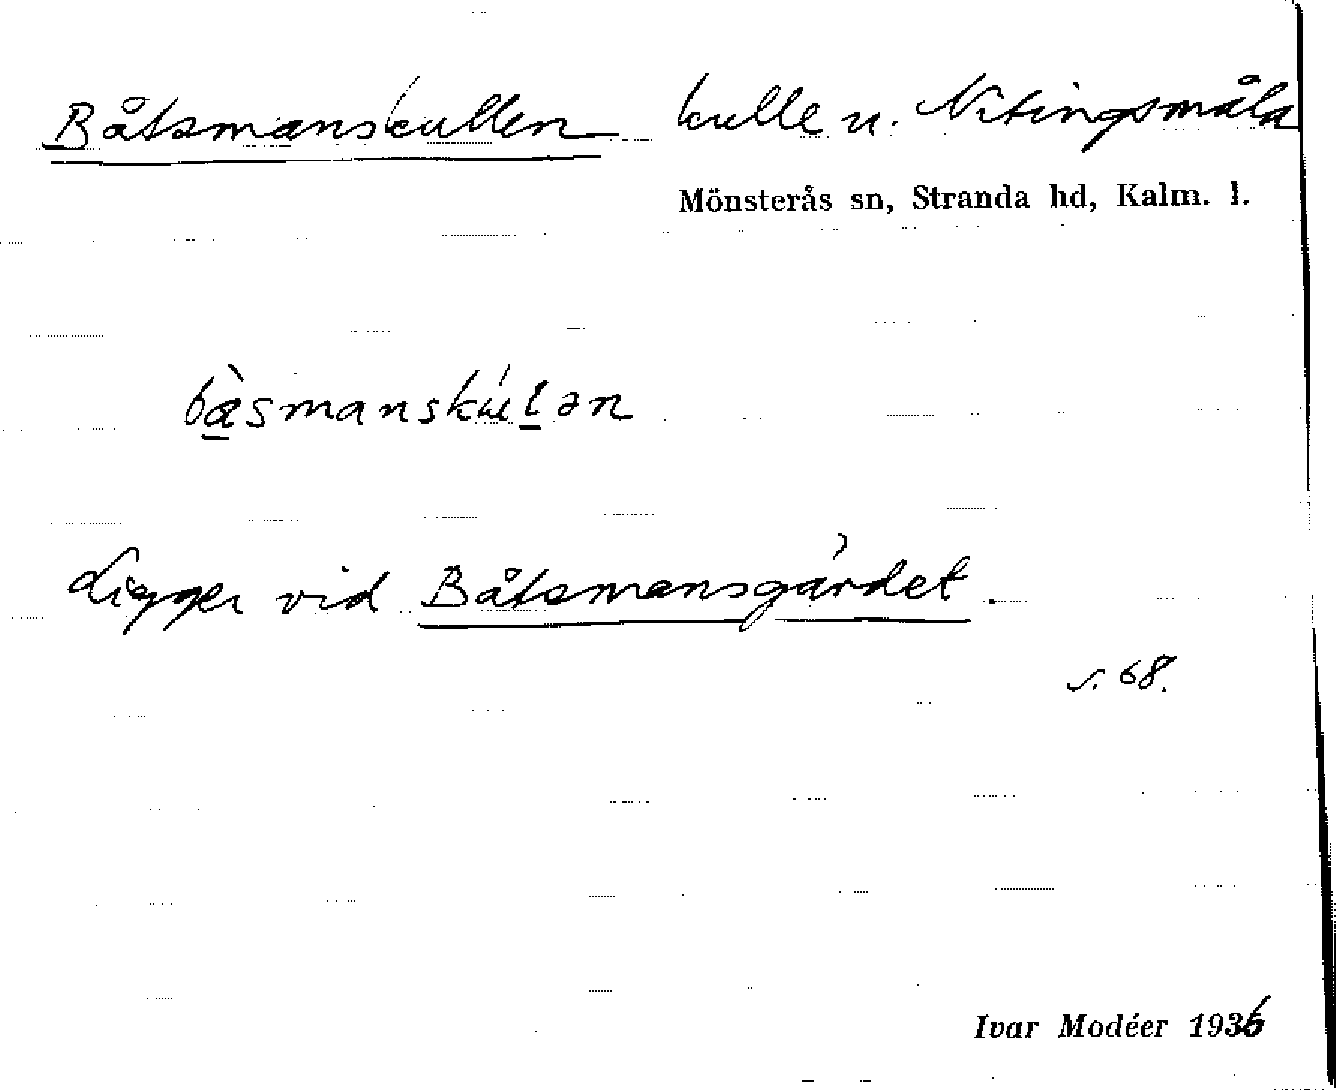 Båtsmanskullen kulle n. Nitingsmåla
Mönsterås sn, Stranda hd, Kalm. l.
Ligger vid Båtsmansgärdet.
s. 68.
Ivar Modéer 1936